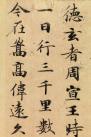 德玄者周宣王時
一日行三千里數
令在嵩高偉遠久